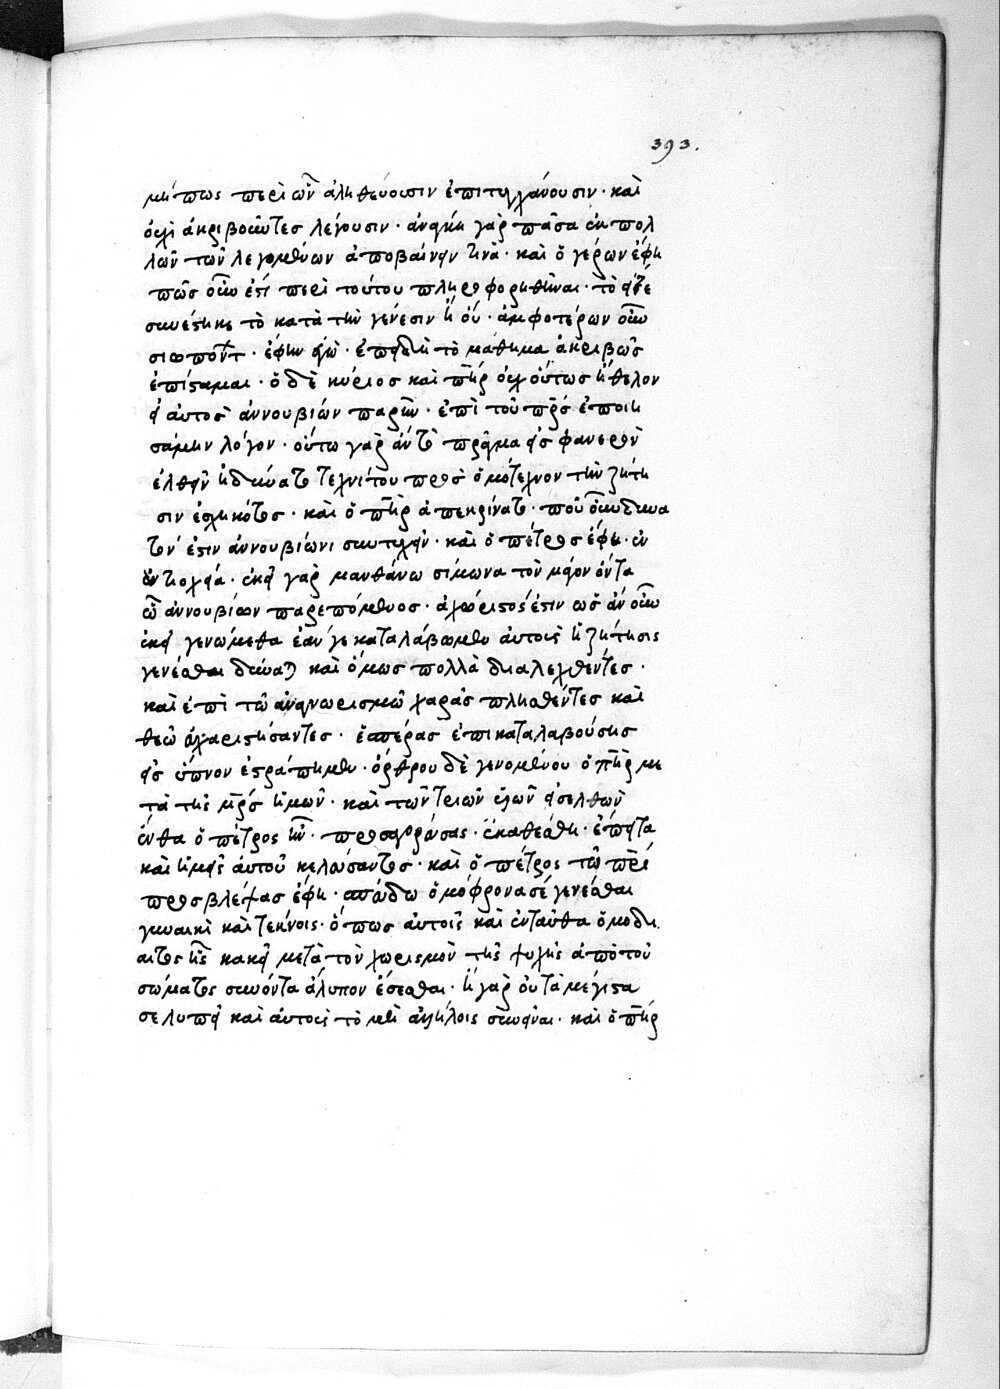 393.
μήπως περὶ ὧν ἀληθεύουσιν ἐπιτυγχάνουσιν· καὶ
οὐχὶ ἀκριβοῦντες λέγουσιν· ἀνάγκη γὰρ πᾶσα ἐκ πολ
λῶν τῶν λεγομένων ἀποβαίνειν τινὰ· καὶ ὁ γέρων ἔφη
πῶς οὖν ἐστί περὶ τούτου πληροφορηθῆναι· τὸ εἴτε
συνέστηκε τὸ κατὰ τὴν γένεσιν ἢ οὔ· ἀμφοτέρων οὖν
σιωπόντ· ἔφην ἐγώ· ἐπειδὴ τὸ μάθημα ἀκριβῶς
ἐπίσταμαι· ὁ δὲ κύριος καὶ πηρ οὐχ οὕτως ἤθελον
εἰ αὐτὸς ἀννουβιών παρῆν· ἐπὶ τοῦ πρς ἐποιη
σάμην λόγον· οὕτω γὰρ ἂν τὸ πρᾶγμα εἰς φανερὸν
ἐλθεῖν ἠδύνατο τεχνίτου πρὸς ὁμότεχνον τὴν ζήτη
σιν ἐσχηκότος· καὶ ὁ πηρ ἀπεκρίνατο· ποῦ οὖν δυνα
τόν ἐστιν ἀννουβίωνι συντυχεῖν· καὶ ὁ πέτρος ἔφη· ἐν
ἀντιοχείᾳ· ἐκεῖ γὰρ μανθάνω σίμωνα τὸν μάγον ὄντα
ὧ ἀννουβίων παρεπόμενος· ἀχώριστός ἐστιν ὡς ἂν οὖν
ἐκεῖ γενώμεθα ἐάν γε καταλάβωμεν αὐτοὺς ἡ ζήτησις
γενέσθαι δύναται καὶ ὅμως πολλὰ διαλεχθέντες·
καὶ ἐπὶ τῶ ἀναγνωρισμῶ χαρᾶς πλησθέντες καὶ
θεῶ εὐχαριστήσαντες· ἑσπέρας ἐπικαταλαβούσης
εἰς ὕπνον ἐτράπημεν· ὄρθρου δὲ γενομένου ὁ πηρ με
τὰ τῆς μρς ἡμῶν· καὶ τῶν τριῶν υἱῶν εἰσελθὼν
ἔνθα ὁ πέτρος ἦν· προσαγορεύσας· ἐκαθέσθη· ἔπειτα
καὶ ἡμεῖς αὐτοῦ κελεύσαντος· καὶ ὁ πέτρος τῶ πρὶ
προσβλέψας ἔφη· σπεύδω ὁμόφρονά σε γενέσθαι
γυναικὶ καὶ τέκνοις· ὅπως αὐτοῖς καὶ ἐνταῦθα ὁμοδι
αιτος ἧς κακεῖ μετὰ τὸν χωρισμὸν τῆς ψυχῆς ἀπὸ τοῦ
σώματος συνόντα ἄλυπον ἔσεσθαι· ἢ γὰρ οὐ τὰ μέγιστα
σε λυπεῖ καὶ αὐτοὺς τὸ μὴ ἀλλήλοις συνεῖναι· καὶ ὁ πηρ